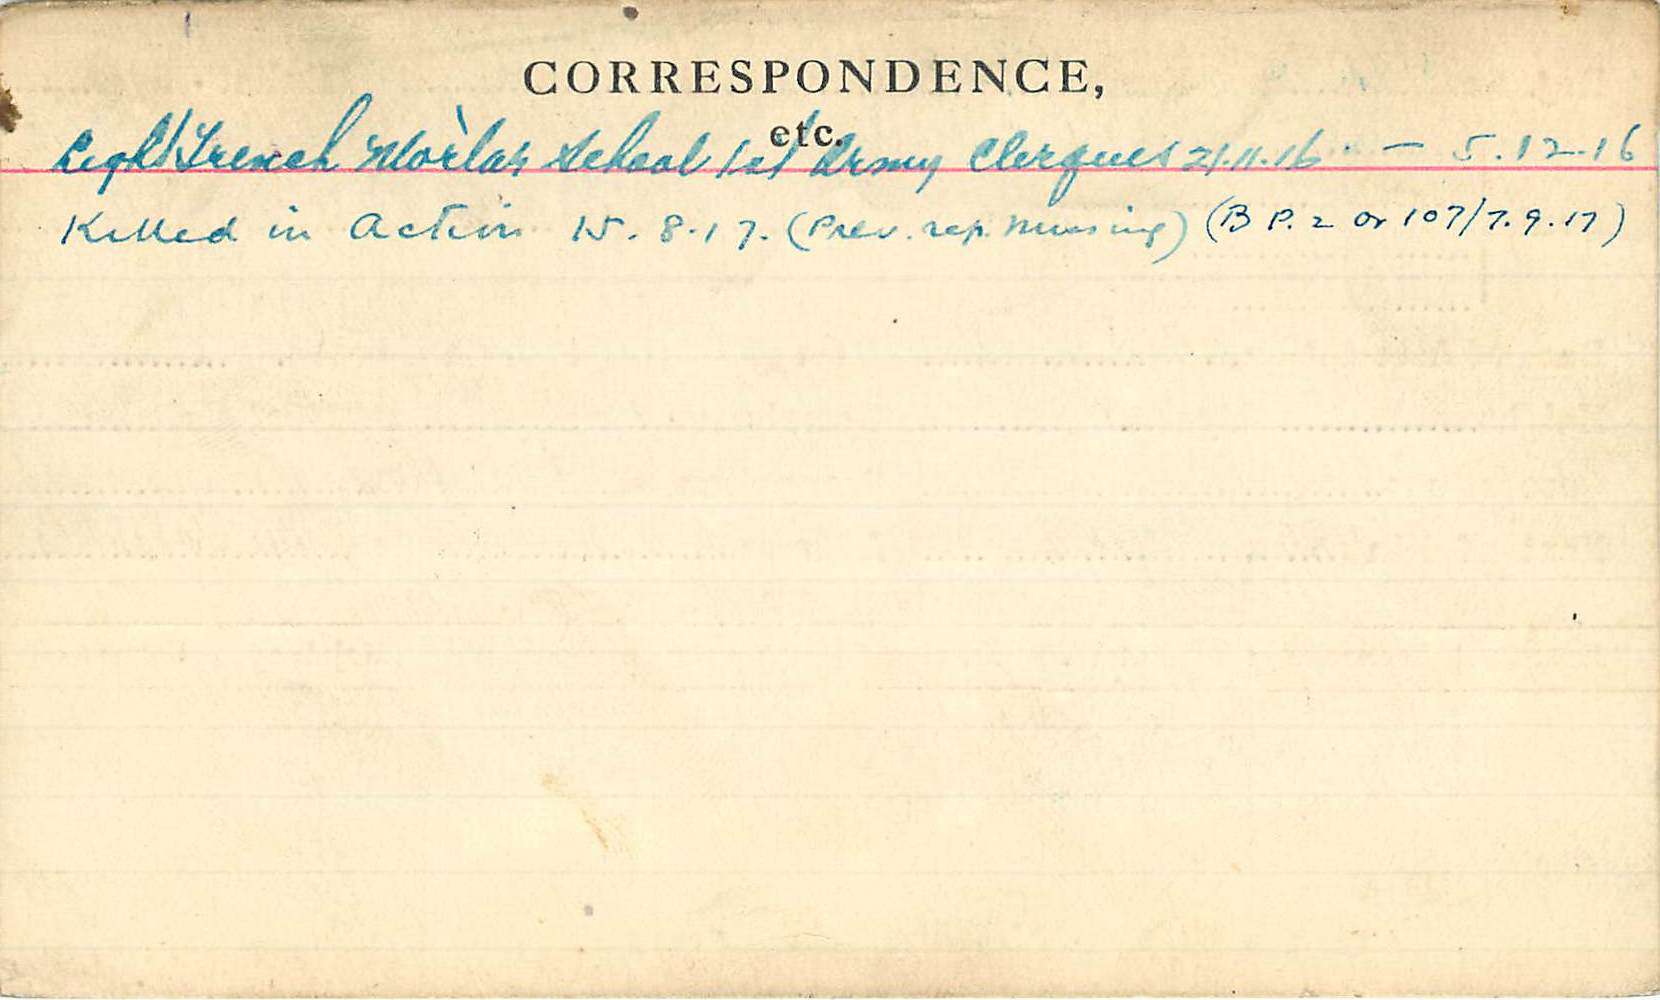 CORRESPONDENCE,
etc.
Light Trench Mortar School 1st Army Clerques 21.11.16 - 5.12.16
Killed in Action 15.8.17. (Prev. rep. missing) (B P. 2 Or 107/7.9.17)